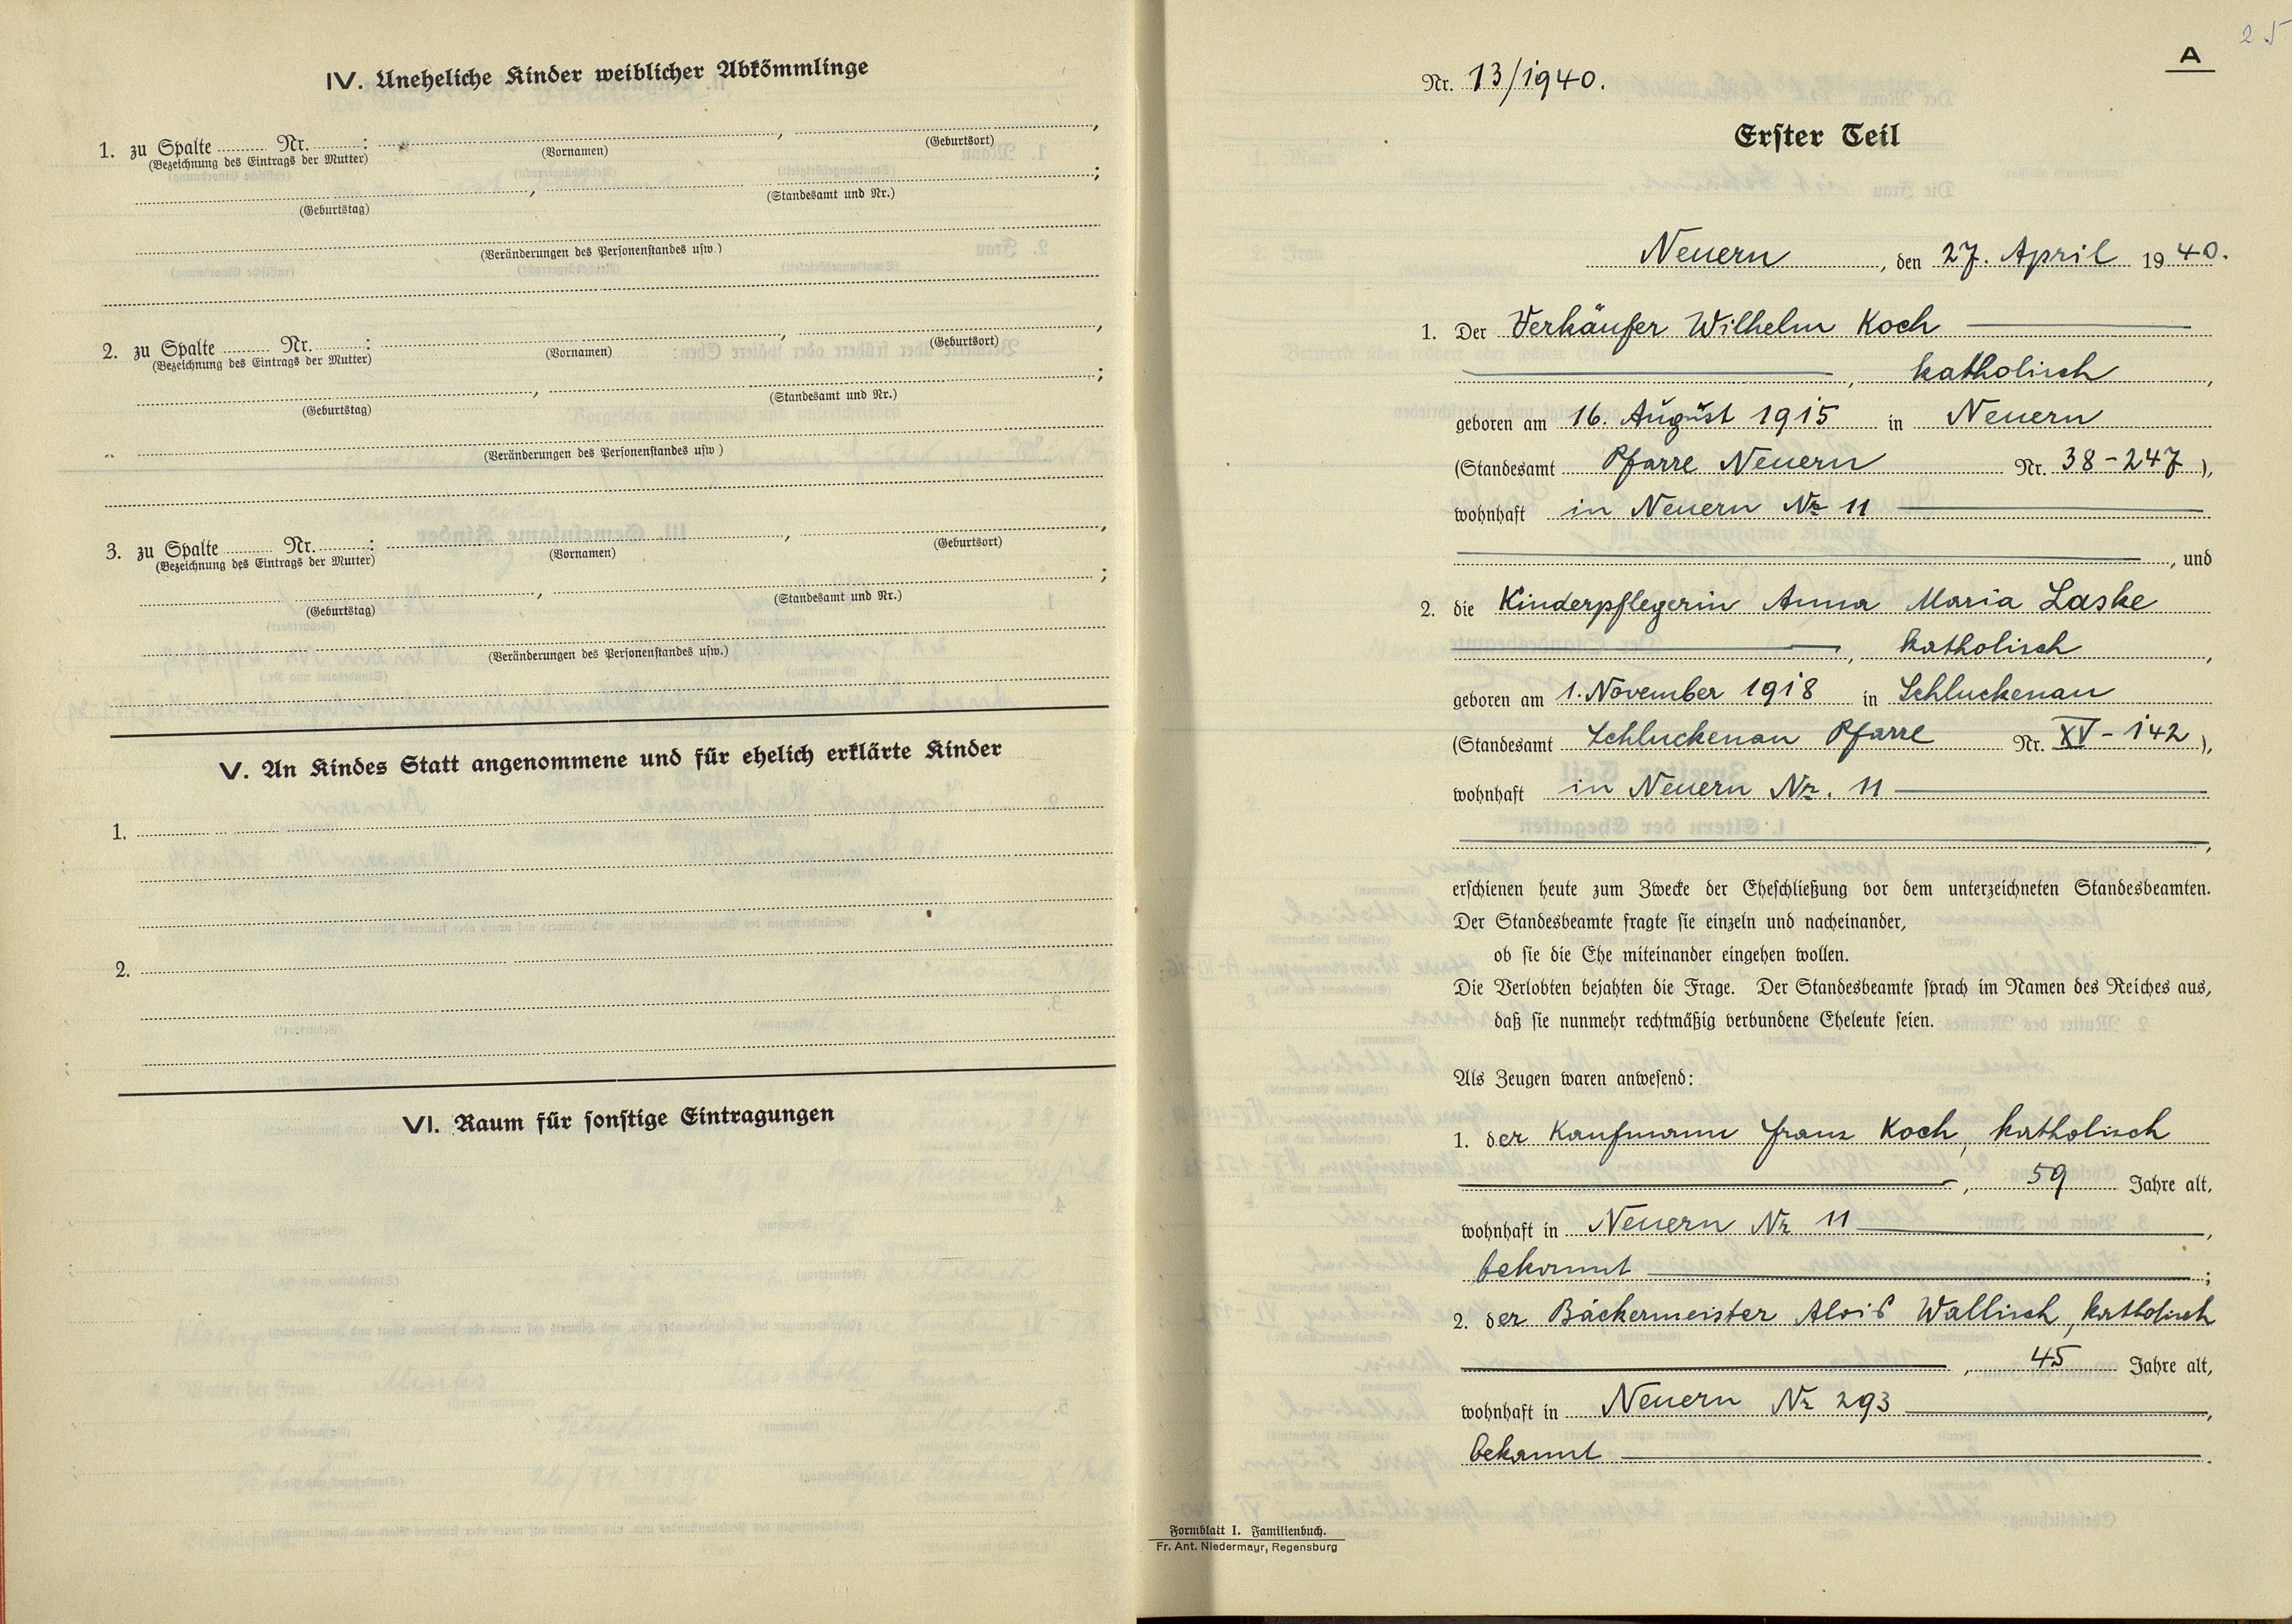 IV. Uneheliche Kinder weiblicher Abkömmlinge
1. zu Spalte ........ Nr. ........ : ........, ........,
(Bezeichnung des Eintrags der Mutter) (Vornamen) (Geburtsort)
........, ........;
(Geburtstag) (Standesamt und Nr.)
(Veränderungen des Personenstandes usw.)
2. zu Spalte ........ Nr. ........ : ........, ........,
(Bezeichnung des Eintrags der Mutter) (Vornamen) (Geburtsort)
........, ........;
(Geburtstag) (Standesamt und Nr.)
(Veränderungen des Personenstandes usw.)
3. zu Spalte ........ Nr. ........ : ........, ........,
(Bezeichnung des Eintrags der Mutter) (Vornamen) (Geburtsort)
........, ........;
(Geburtstag) (Standesamt und Nr.)
(Veränderungen des Personenstandes usw.)
V. An Kindes Statt angenommene und für ehelich erklärte Kinder
1.
2.
VI. Raum für sonstige Eintragungen
25
A
Nr. 13/1940.
Erster Teil
Neuern, den 27. April 1940.
1. Der Verkäufer Wilhelm Koch
, katholisch,
geboren am 16. August 1915 in Neuern
(Standesamt Pfarre Neuern Nr. 38-247),
wohnhaft in Neuern Nr 11
, und
2. die Kinderpflegerin Anna Maria Laske
, katholisch,
geboren am 1. November 1918 in Schluckenau
(Standesamt Schluckenau Pfarre Nr. XV-142),
wohnhaft in Neuern Nr. 11
,
erschienen heute zum Zwecke der Eheschließung vor dem unterzeichneten Standesbeamten.
Der Standesbeamte fragte sie einzeln und nacheinander,
ob sie die Ehe miteinander eingehen wollen.
Die Verlobten bejahten die Frage. Der Standesbeamte sprach im Namen des Reiches aus,
daß sie nunmehr rechtmäßig verbundene Eheleute seien.
Als Zeugen waren anwesend:
1. der Kaufmann Franz Koch, katholisch
, 59 Jahre alt,
wohnhaft in Neuern Nr 11,
bekannt;
2. der Bäckermeister Alois Wallisch, katholisch
, 45 Jahre alt,
wohnhaft in Neuern Nr 293,
bekannt.
Formblatt I. Familienbuch.
Fr. Ant. Niedermayr, Regensburg